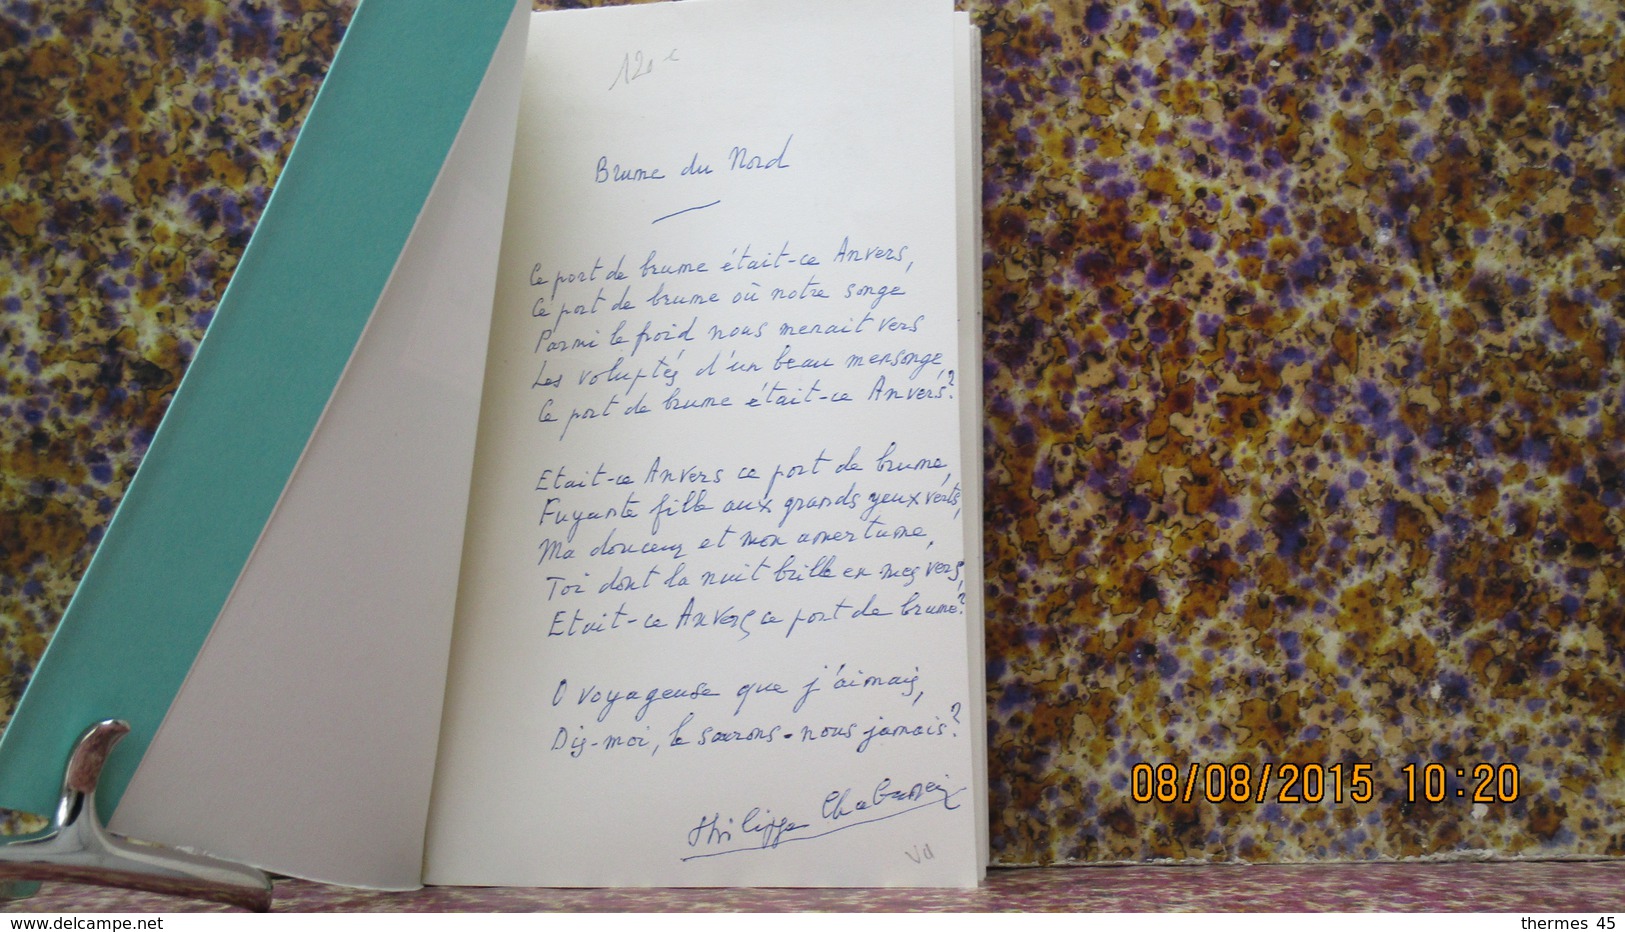 120 €
Brume du Nord
Ce port de brume était-ce Anvers,
Ce port de brume où notre songe
Parmi le froid nous menait vers
Les voluptés d'un beau mensonge,
Ce port de brume était-ce Anvers?
Etait-ce Anvers ce port de brume,
Fuyante fille aux grands yeux verts,
Ma douceur et mon amertume,
Toi dont la nuit brille en mes vers,
Etait-ce Anvers ce port de brume?
O voyageuse que j'aimais,
Dis-moi, le saurons-nous jamais?
Philippe Chabaneix
Vd
08/08/2015 10:20
www.delcampe.net
thermes 45